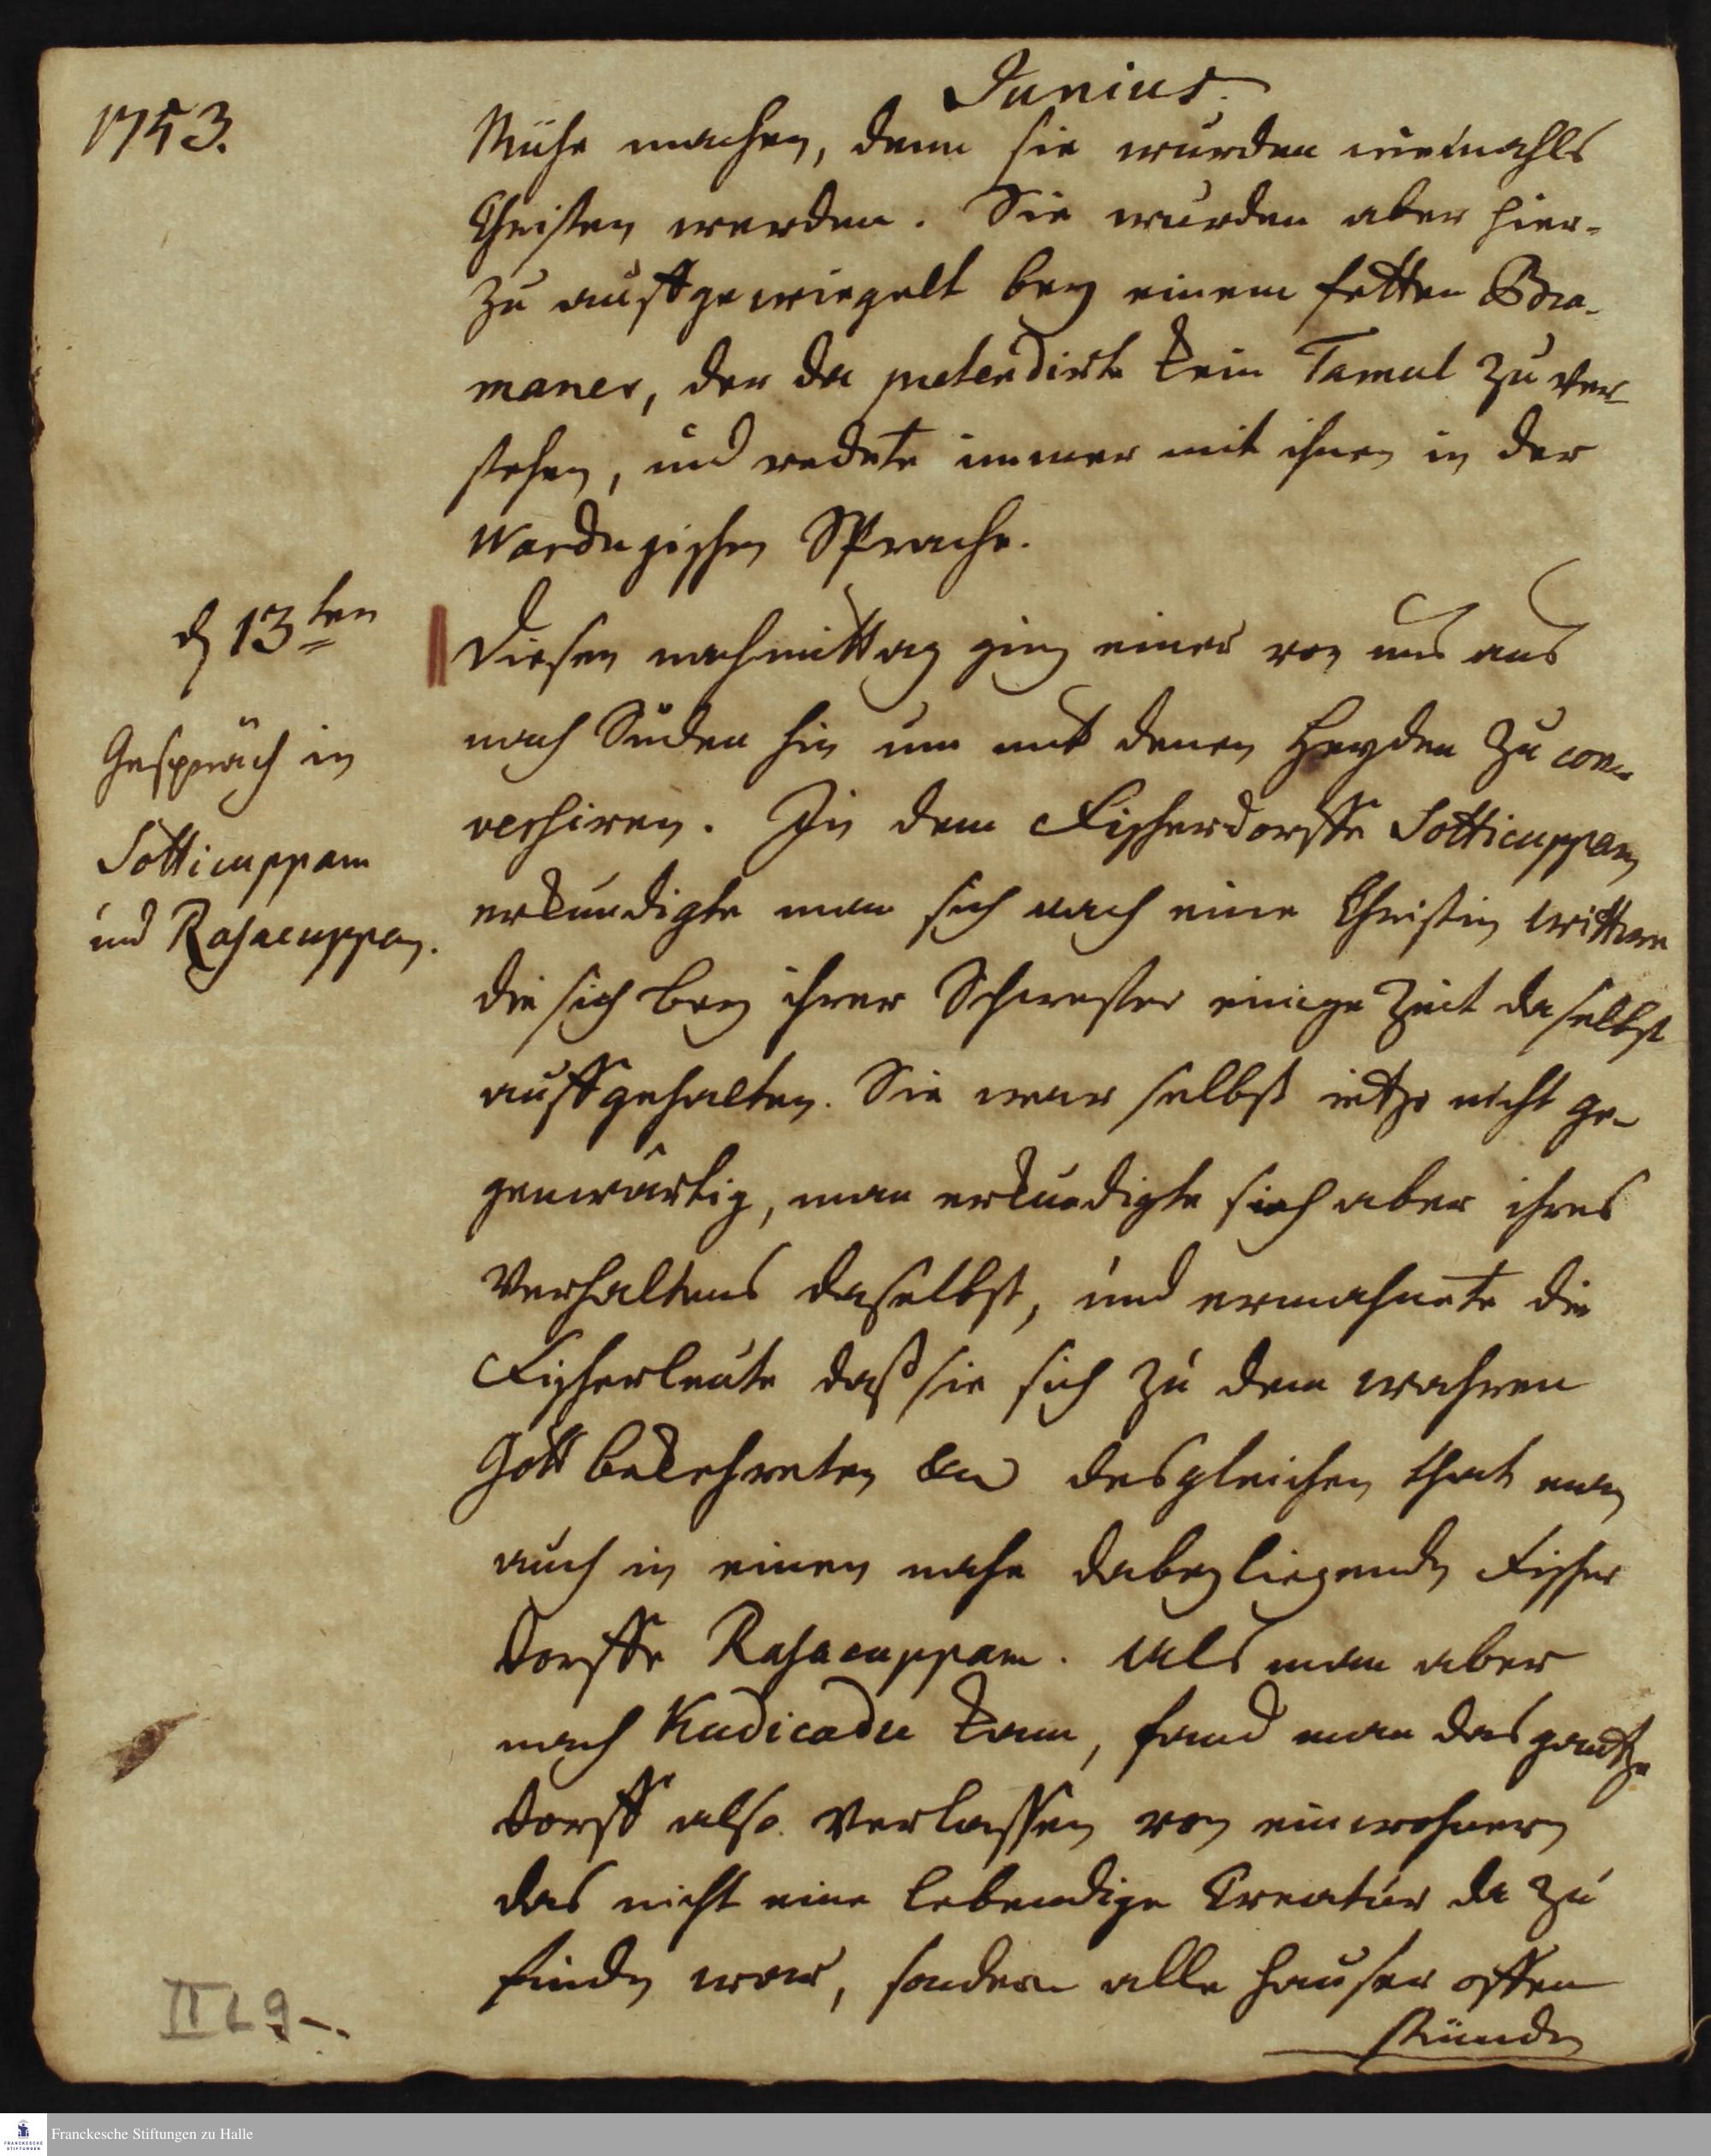 Junius.
1753.
Mühe machen, denn sie wurden niemahls
Christen werden. Sie wurden aber hier-
zu auffgewiegelt bey einem fetten Bra-
maner, der da pretendirte kein Tamul zu ver-
stehen, und redete immer mit ihnen in der
Wardugischen Sprache.
d 13ten
Diesen nachmittag ging einer von uns aus
nach Süden hin um mit denen Heyden zu con-
versiren. In dem Fischerdorffe Sotticuppam
erkundigte man sich nach eine Christin wittwe
die sich bey ihrer Schwester einige Zeit daselbst
auffgehalten. Sie war selbst ietzo nicht ge-
genwärtig, man erkundigte sich aber ihres
Verhaltens daselbst, und ermahnete die
Fischerleute daß sie sich zu dem wahren
Gott bekehreten desgleichen that man
auch in einen nahe dabey liegenden Fischer
dorffe Rasacuppam. Als man aber
nach Kudicadu kam, fand man das gantze
dorff also verlassen von einwohnern
das nicht eine lebendige Creatur da zu
finden war, sondern alle hauser offen
stunden
Gespräch in
Sotticuppam
und Rasacuppam.
II L 9-.
Franckesche Stiftungen zu Halle
FRANCKESCHE
STIFTUNGEN